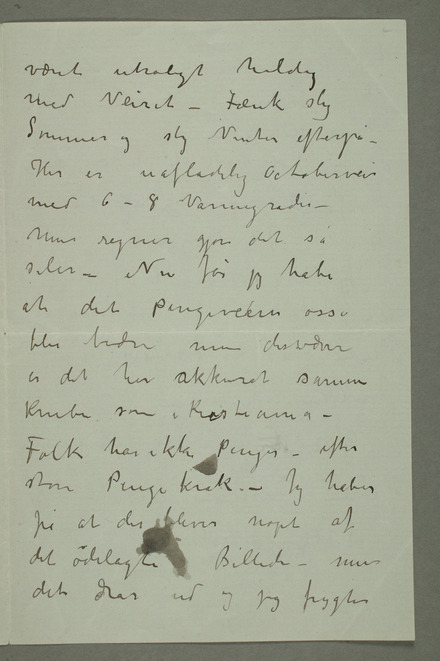 været utroligt heldig
med Veiret – Tænk slig
Sommer og slig Vinter efterpå –
Her er uafladelig Octoberveir
med 6 – 8 Varmegrader –
Men regner gjør det så
siler – Nu får jeg håbe
at det Pengeveiret osså
blir bedre men desværre
er det her akkurat samme
Knibe som i Kristiania –
Folk har ikke Penger – efter
store Pengekrak. – Jeg håber
på at der blever nopt af
det ödelagte Billede – men
det drar ud og jeg frygter